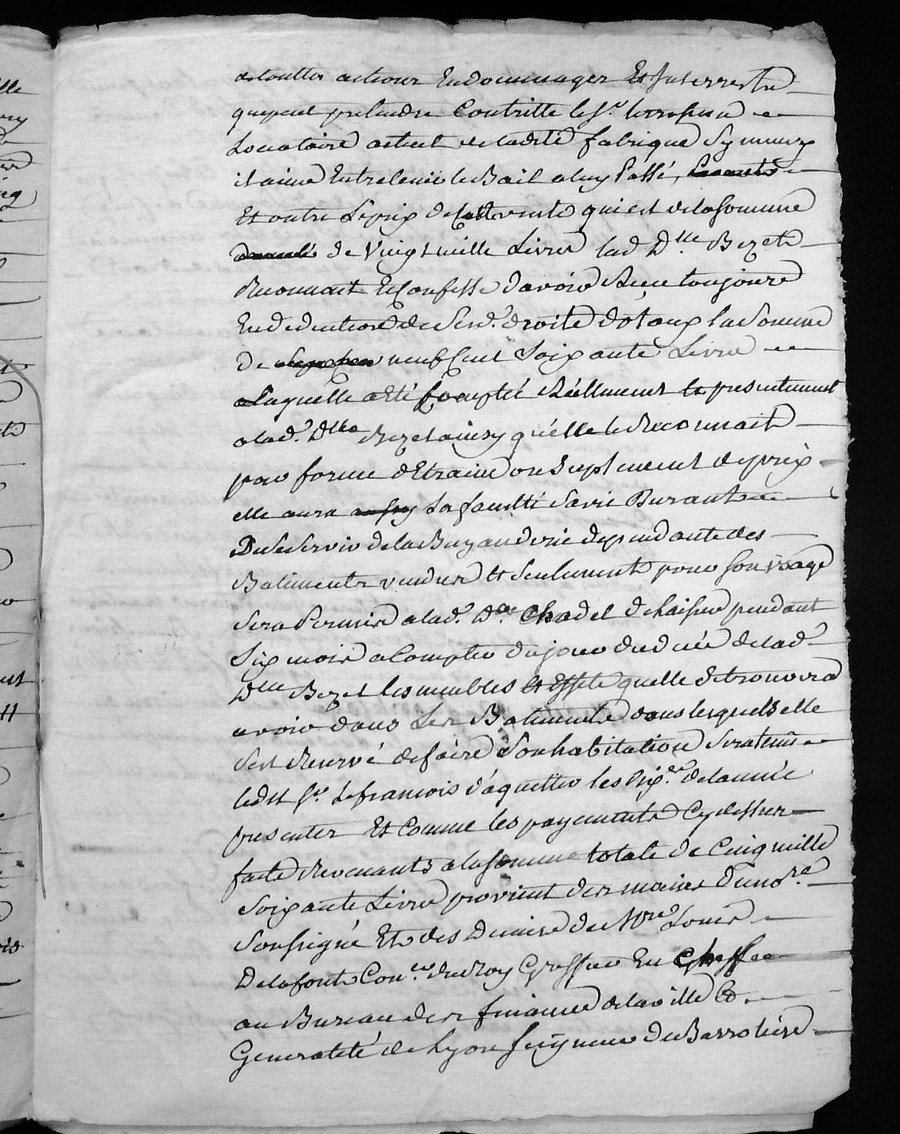 de toutter actions En dommager Et Interrest
quipeut pretendre Contritte le Sr
Locataire actuel de ladite fabrique Sy mieux
il aime Entretenir le Bail a luy Passé,
Et outre Leprix de Cette vente qui est de la Somme
de Vingt mille Livres lad Dlle Bezet
Reconnait Et Confesse d'avoir Reçu toujours
En deduction de Sesd. droits dotaux la Somme
de neuf Cent Soixante Livre
a Laquelle a Eté Compté Réellement et presentement
alad. Dlle Bezet ainsy qu'elle le Reconnait
pour forme d'Etraine ou Supplement de prix
elle aura la faculté Savie Durant
De Se Servir de la Buyanderie dependante des
Batiments vendus Et Seulement pour Son usage
Sera Permis alad. De Chadel de laisser pendant
Six mois a Compter du jour du déces de lad.
Dlle Bezet les meubles Et Effets quelle Se trouvera
avoir dans Les Batiments dans lesquels elle
Sest Reservé de faire Son habitation Sera tenu
ledit Sr. Lefrancois d'aquitter les de lannée
presenter Et Comme les payements Cy dessus
faits Revenants a la Somme totale de Cinq mille
Soixante Livre provient des mains dunore
Soussigné Et des Deniers de Mre Louis
Delafont Coner. du Roy Greffier En Cheff
au Bureau des finances de la ville &
Generalité de Lyon Seigneur de La Barroliere